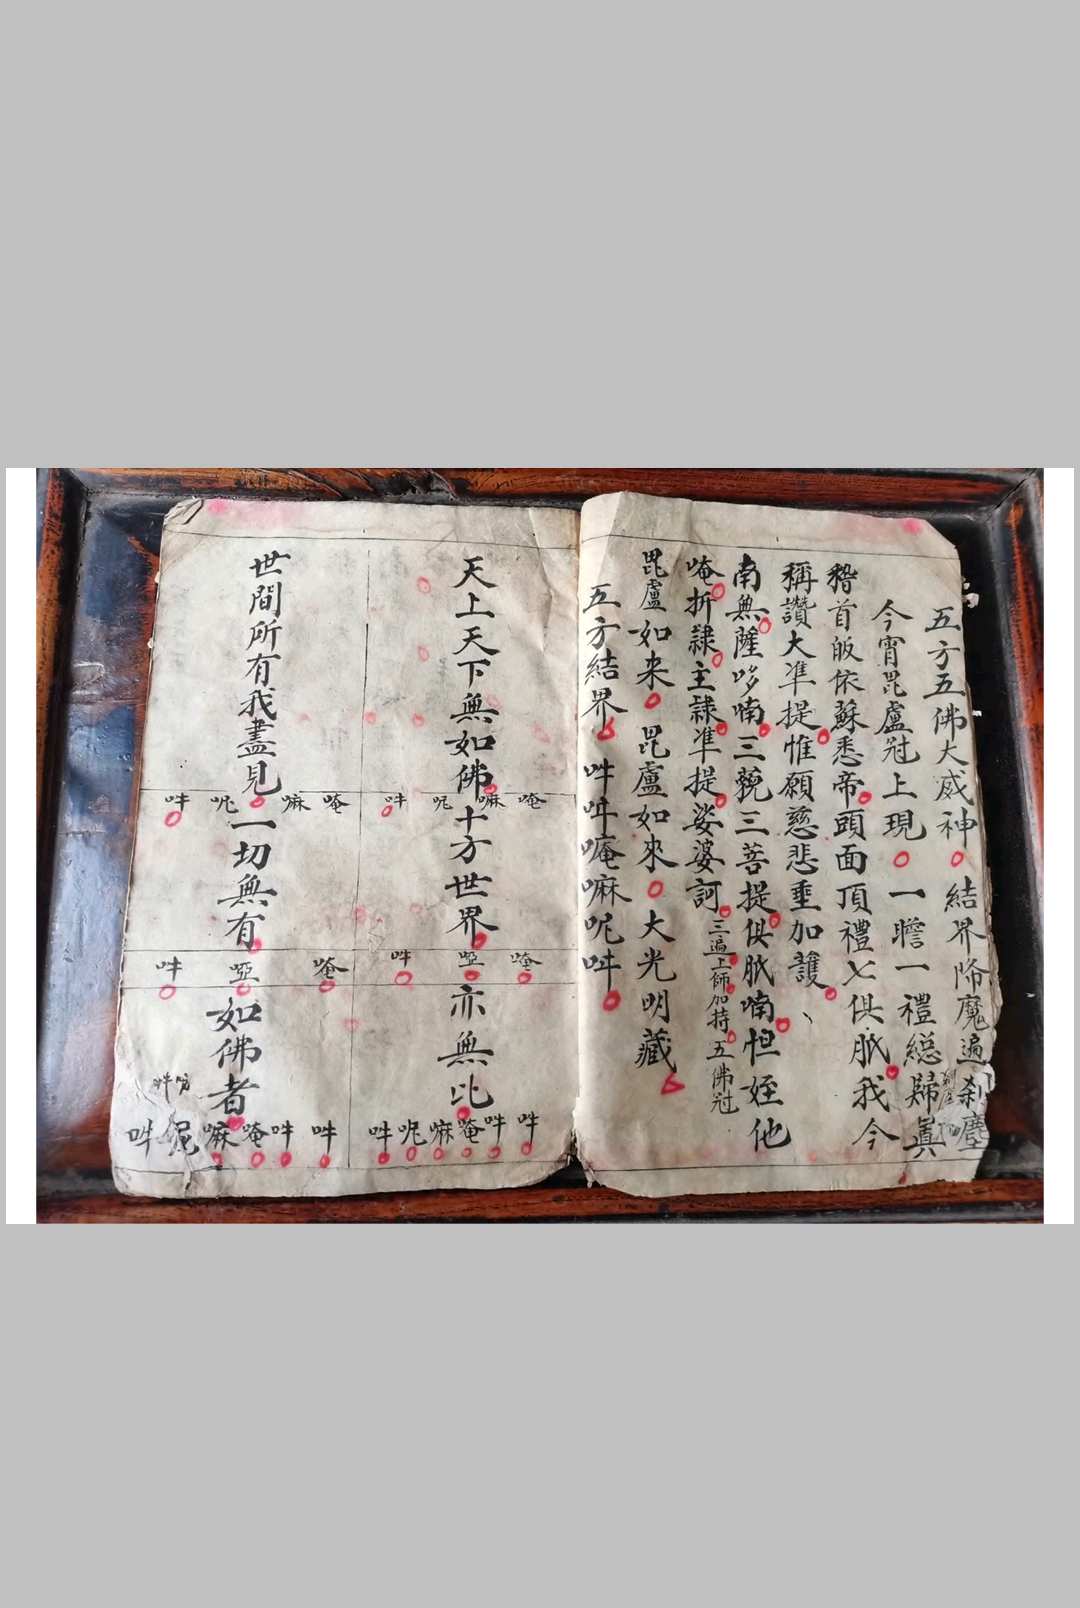 五方五佛大威神結界降魔遍刹塵
今宵毘盧冠上現一瞻一禮總歸眞
稽首皈依蘇悉帝頭面頂禮七俱胝我今
稱讚大凖提惟願慈悲垂加護
南無薩哆喃三藐三菩提俱胝喃怛姪他
唵折隸主隸凖提娑婆訶三遍上師加持五佛冠
毘盧如來毘盧如來大光明藏
五方結界吽吽唵嘛呢吽
天上天下無如佛十方世界亦無比
唵嘛呢吽
唵啞吽
吽吽唵嘛呢吽
世間所有我盡見一切無有如佛者
唵嘛呢吽
唵啞吽
吽吽唵嘛呢吽